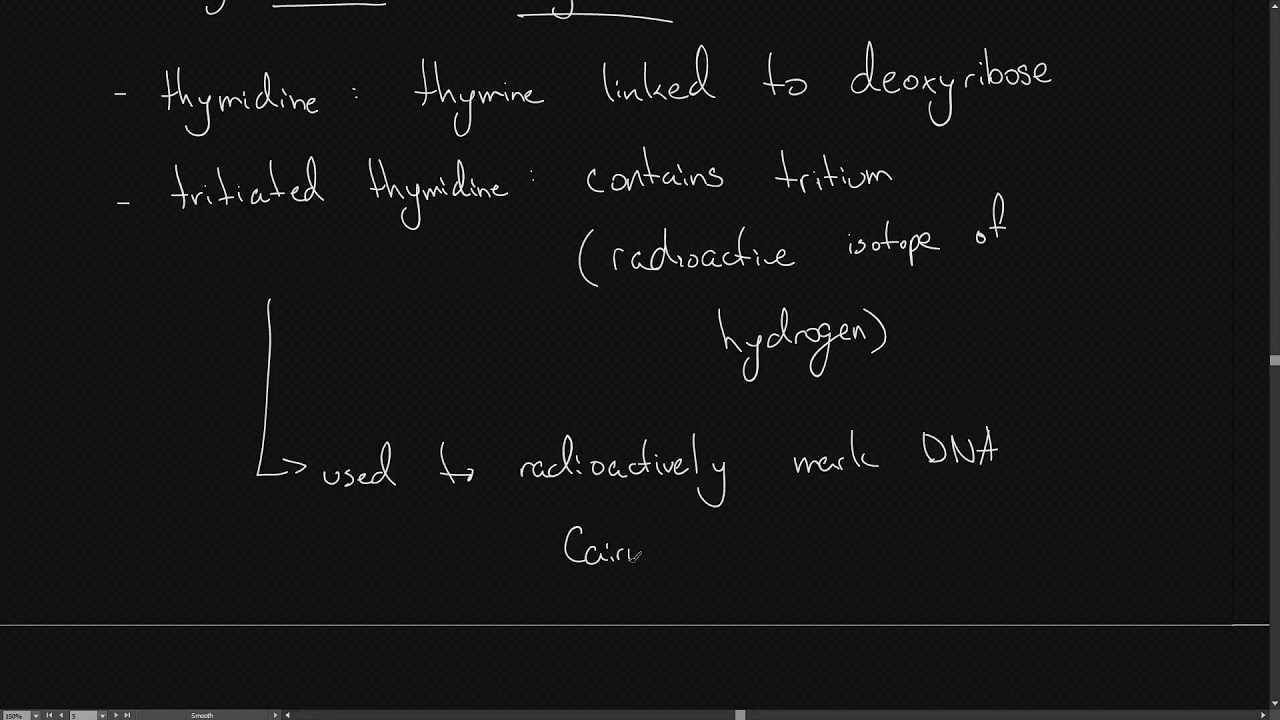 - thymidine : thymine linked to deoxyribose
- tritiated thymidine : contains tritium
(radioactive isotope of
hydrogen)
used to radioactively mark DNA
Cairn
150% 5 Smooth